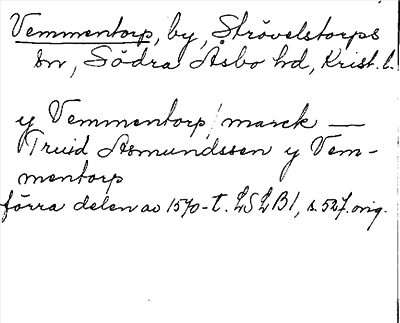 Vemmentorp, by, Strövelstorps
sn, Södra Åsbo hd, Krist. l.
y Vemmentorp / marck —
Truid Asmundssen y Vem-
mentorp
förra delen av 1570-t. LSLB1, s. 527. orig.